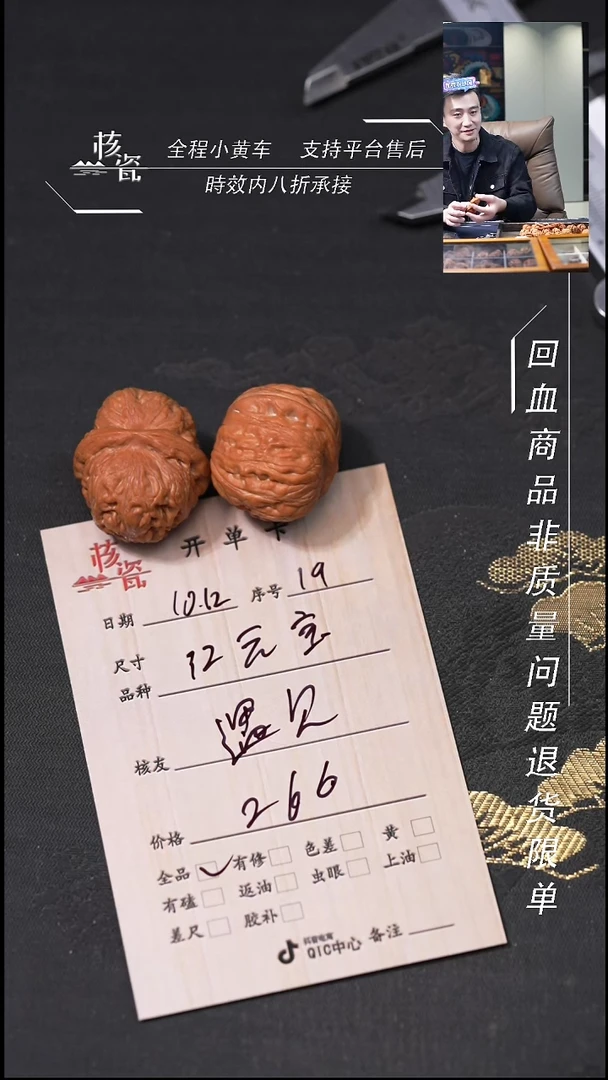 核瓷
全程小黄车 支持平台售后
時效内八折承接
回血商品非质量问题退货限单
核瓷
开单卡
日期 10.12 序号 19
尺寸
品种 42元宝
核友 遇见
价格 266
全品 有修 色差 黄
有磕 返油 虫眼 上油
差尺 胶补
抖音电商
QIC中心 备注